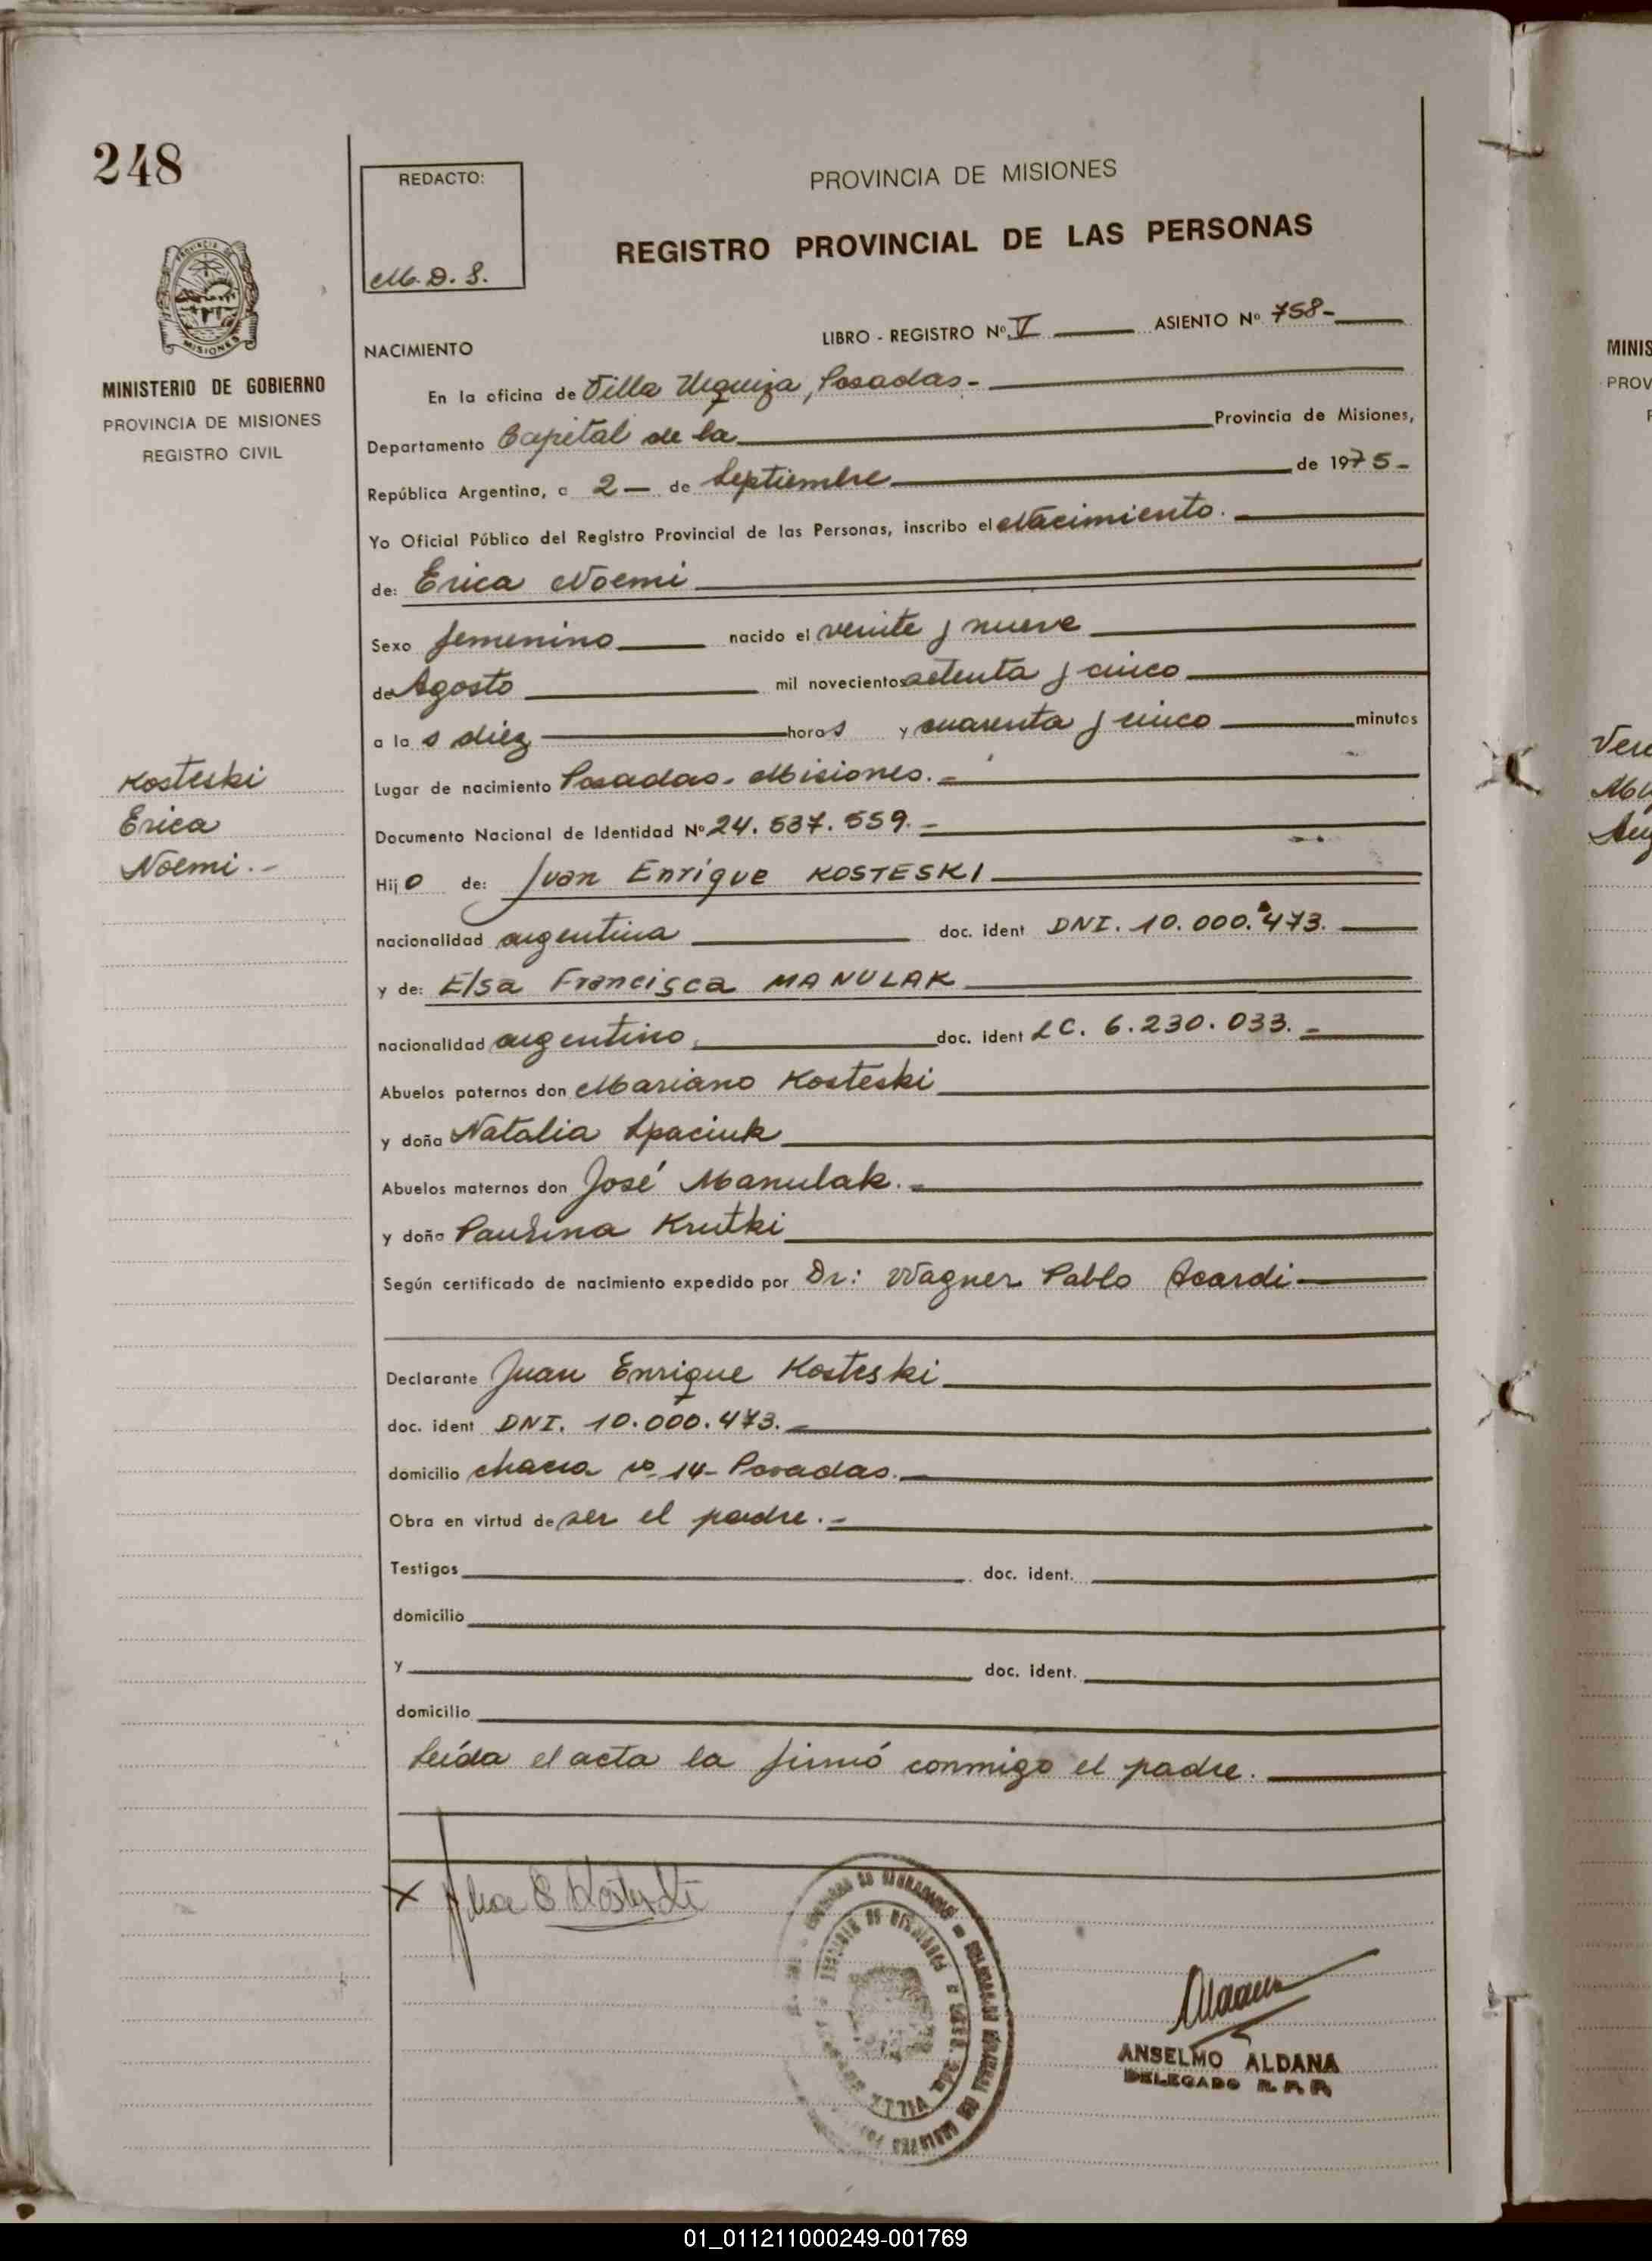 248
REDACTO:
M. D. S.
PROVINCIA DE MISIONES
REGISTRO PROVINCIAL DE LAS PERSONAS
PROVINCIA DE
MISIONES
MINISTERIO DE GOBIERNO
PROVINCIA DE MISIONES
REGISTRO CIVIL
NACIMIENTO LIBRO - REGISTRO Nº V ASIENTO Nº 758-
En la oficina de Villa Urquiza, Posadas-
Departamento Capital de la Provincia de Misiones,
República Argentina, a 2 — de Septiembre de 1975-
Yo Oficial Público del Registro Provincial de las Personas, inscribo el Nacimiento.
de: Erica Noemi
Sexo femenino nacido el veinte y nueve
de Agosto mil novecientos setenta y cinco
a la s diez horas y cuarenta y cinco minutos
Lugar de nacimiento Posadas- Misiones.-
Documento Nacional de Identidad Nº 24.537.559.-
Hijo de: Juan Enrique KOSTESKI
nacionalidad argentina doc. ident DNI. 10.000.473.
y de: Elsa Francisca MANULAK
nacionalidad argentino, doc. ident LC. 6.230.033.-
Abuelos paternos don Mariano Kosteski
y doña Natalia Spaciuk
Abuelos maternos don José Manulak.-
y doña Paulina Krutki
Según certificado de nacimiento expedido por Dr: Wagner Pablo Acardi
Declarante Juan Enrique Kosteski
doc. ident DNI. 10.000.473.-
domicilio chacra nº 14- Posadas.-
Obra en virtud de ser el padre.-
Testigos doc. ident.
domicilio
y doc. ident.
domicilio
Leída el acta la firmó conmigo el padre.
Kosteski
Erica
Noemi.-
X Juan E Kosteski
Aldana
ANSELMO ALDANA
DELEGADO R. P. P.
MINIS
PROV
01_011211000249-001769